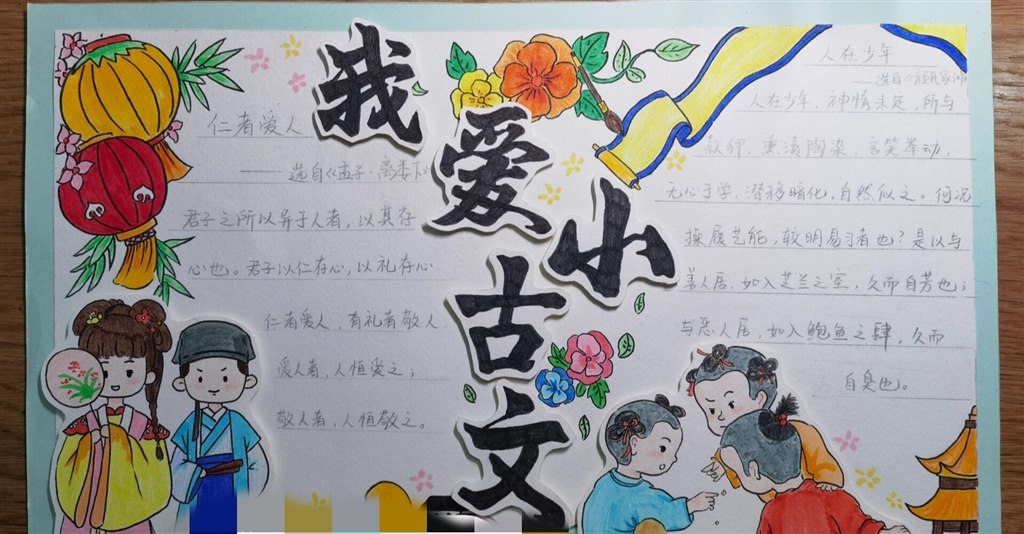 我爱小古文
仁者爱人
——选自《孟子·离娄下》
君子之所以异于人者，以其存
心也。君子以仁存心，以礼存心
仁者爱人，有礼者敬人
爱人者，人恒爱之；
敬人者，人恒敬之。
人在少年
——选自《颜氏家训
人在少年，神情未定，所与
款狎，熏渍陶染，言笑举动，
无心于学，潜移暗化，自然似之。何况
操履艺能，较明易习者也？是以与
善人居，如入芝兰之室，久而自芳也；
与恶人居，如入鲍鱼之肆，久而
自臭也。